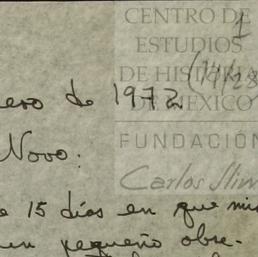 CENTRO DE
ESTUDIOS
DE HISTORIA
DE MÉXICO
FUNDACIÓN
Carlos Slim
1
ero de 1972
Novo:
e 15 días en que mi
un pequeño obse-